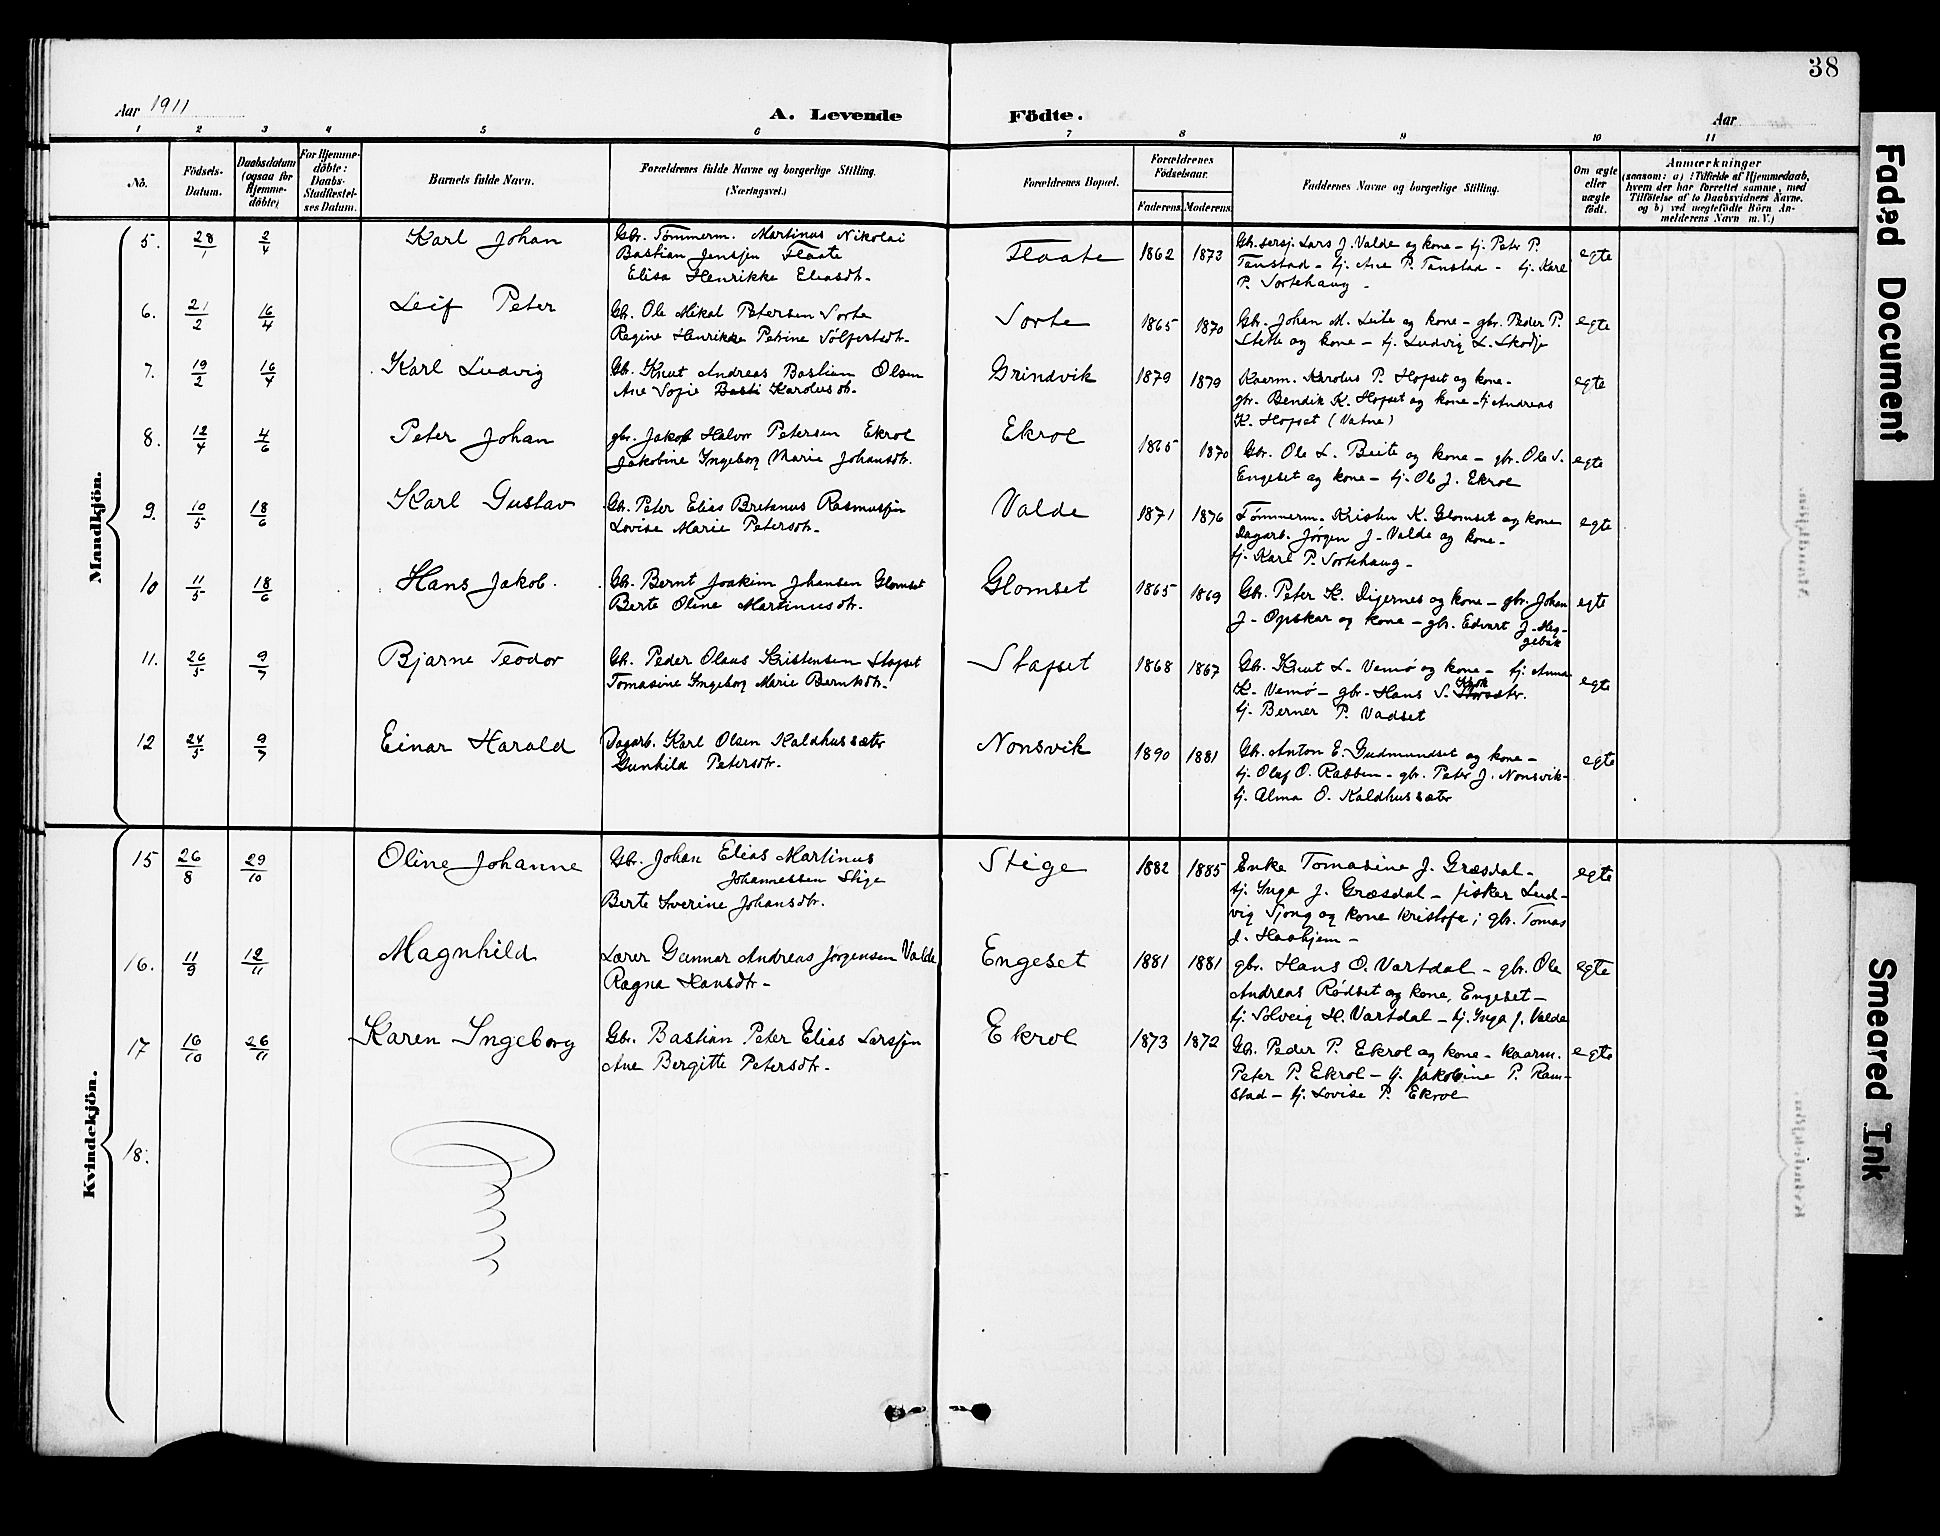 38
Aar 1911
A. Levende Födte.
Aar
1 2 3 4 5 6 7 8 9 10 11
No.
Födsels-Datum.
Daabsdatum (ogsaa for Hjemme-döbte)
For Hjemme-döbte: Daabs-Stadfæstel-ses Datum.
Barnets fulde Navn.
Forældrenes fulde Navne og borgerlige Stilling. (Næringsvei.)
Forældrenes Bopæl.
Forældrenes Födselsaar.
Faderens. Moderens.
Faddernes Navne og borgerlige Stilling.
Om ægte eller uægte födt.
Anmærkninger
(saasom: a) i Tilfælde af Hjemmedaab,
hvem der har forrettet samme, med
Tilföielse af to Daabsvidners Navne.
og b) ved uægtefödte Börn An-
melderens Navn m. V.)
Mandkjön.
5. 28/1 2/4 Karl Johan
Gbr. Tømmerm. Martinus Nikolai
Bastian Jensen Flaate
Elisa Henrikke Eliasdtr.
Flaate 1862 1873
Gbr. sersj. Lars J. Valde og kone - tj. Peter P.
Tanstad - tj. Ane P. Tanstad - tj. Karl
P. Sortehaug -
egte
6. 21/2 16/4 Leif Peter
Gb. Ole Mikal Petersen Sorte
Regine Henrikke Petrine Sølfestsdtr.
Sorte 1865 1870
Gbr. Johan M. Leite og kone - gbr. Peder P.
Stette og kone - tj. Ludvig L. Skodje
egte
7. 19/2 16/4 Karl Ludvig
Gb. Knut Andreas Bastian Olsen
Ane Sofie Basti Karolusdtr.
Grindvik 1879 1879
Kaarm. Karolus P. Hofset og kone -
gbr. Bendik K. Hofset og kone - tj Andreas
K. Hofset (Vatne)
egte
8. 12/4 4/6 Peter Johan
gbr. Jakob Halvor Petersen Ekrol
Jakobine Ingeborg Marie Johansdtr.
Ekrol 1865 1870
Gbr. Ole L. Beite og kone - gbr. Ole S.
Engeset og kone - tj. Ol J. Ekrol
egte
9. 10/5 18/6 Karl Gustav
Gb. Peter Elias Bretanus Rasmussen
Lovise Marie Petersdtr.
Valde 1871 1876
Tømmerm. Kristen K. Glomset og kone
Dagarb. Jørgen J. Valde og kone -
tj. Karl P. Sortehaug -
egte
10 11/5 18/6 Hans Jakob.
Gb. Bernt Joakim Johansen Glomset
Berte Oline Martinusdtr.
Glomset 1865 1869
Gbr. Peter K. Digernes og kone - gbr. Johan
J. Opskar og kone - gbr. Edvart J. Meg-
gebak
egte
11. 26/5 9/7 Bjarne Teodor
Gb. Peder Olaus Kristensen Stafset
Tomasine Ingeborg Marie Berntsdtr.
Stafset 1868 1867
Gb. Knut L. Vemø og kone - tj. Anna
K. Vemø - gbr. Hans S.
tj. Berner P. Vadset
egte
12 24/5 9/7 Einar Harald
Dagarb. Karl Olsen Kaldhussæter
Gunhild Petersdtr.
Nonsvik 1890 1881
Gb. Anton E. Gudmundset og kone -
tj. Olaf O. Rabben - gbr. Peter J. Nonsvik -
tj. Alma O. Kaldhussæter
egte
Kvindekjön.
15 26/8 29/10 Oline Johanne
Gbr. Johan Elias Martinus
Johannessen Stige
Berte Severine Johansdtr.
Stige 1882 1885
Enke Tomasine J. Græsdal -
tj. Inga J. Græsdal - fisker Lud-
vig Sjong og kone Kristofa; gbr. Tomas
J. Haahjem -
egte
16. 11/9 12/11 Magnhild
Lærer Gunnar Andreas Jørgensen Valde
Ragna Hansdtr -
Engeset 1881 1881
gbr. Hans O. Vartdal - gbr. Ole
Andreas Rødset og kone, Engeset -
tj Solveig H. Vartdal - tj. Inga J. Valde
egte
17 16/10 26/11 Karen Ingeborg
Gbr. Bastian Peter Elias Larsen
Ane Bergitte Petersdtr.
Ekrol 1873 1872
Gb. Peder P. Ekrol og kone - kaarm.
Peter P. Ekrol - tj. Jakobine P. Ram-
stad - tj. Lovise P. Ekrol
egte
18.
Faded Document
Smeared Ink